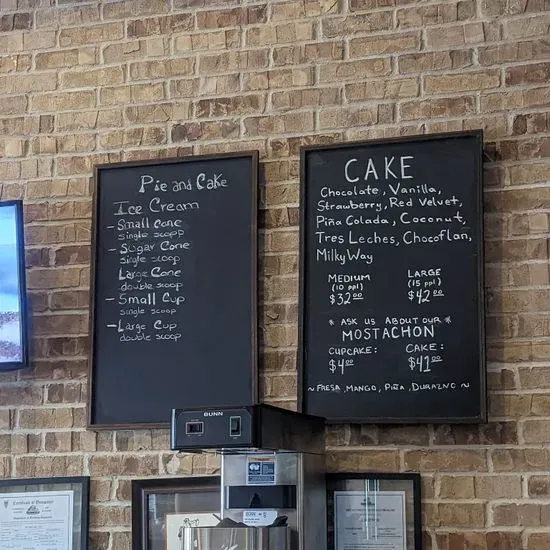 Pie and Cake
Ice Cream
- Small Cone
single scoop
- Sugar Cone
single scoop
Large Cone
double scoop
- Small Cup
single scoop
- Large Cup
double scoop
CAKE
Chocolate, Vanilla,
Strawberry, Red Velvet,
Piña Colada, Coconut,
Tres Leches, Chocoflan,
Milky Way
MEDIUM
(10 ppl)
$32.00
LARGE
(15 ppl)
$42.00
* ASK US ABOUT OUR *
MOSTACHON
CUPCAKE:
$4.00
CAKE:
$41.00
~ FRESA, MANGO, PIÑA, DURAZNO ~
BUNN